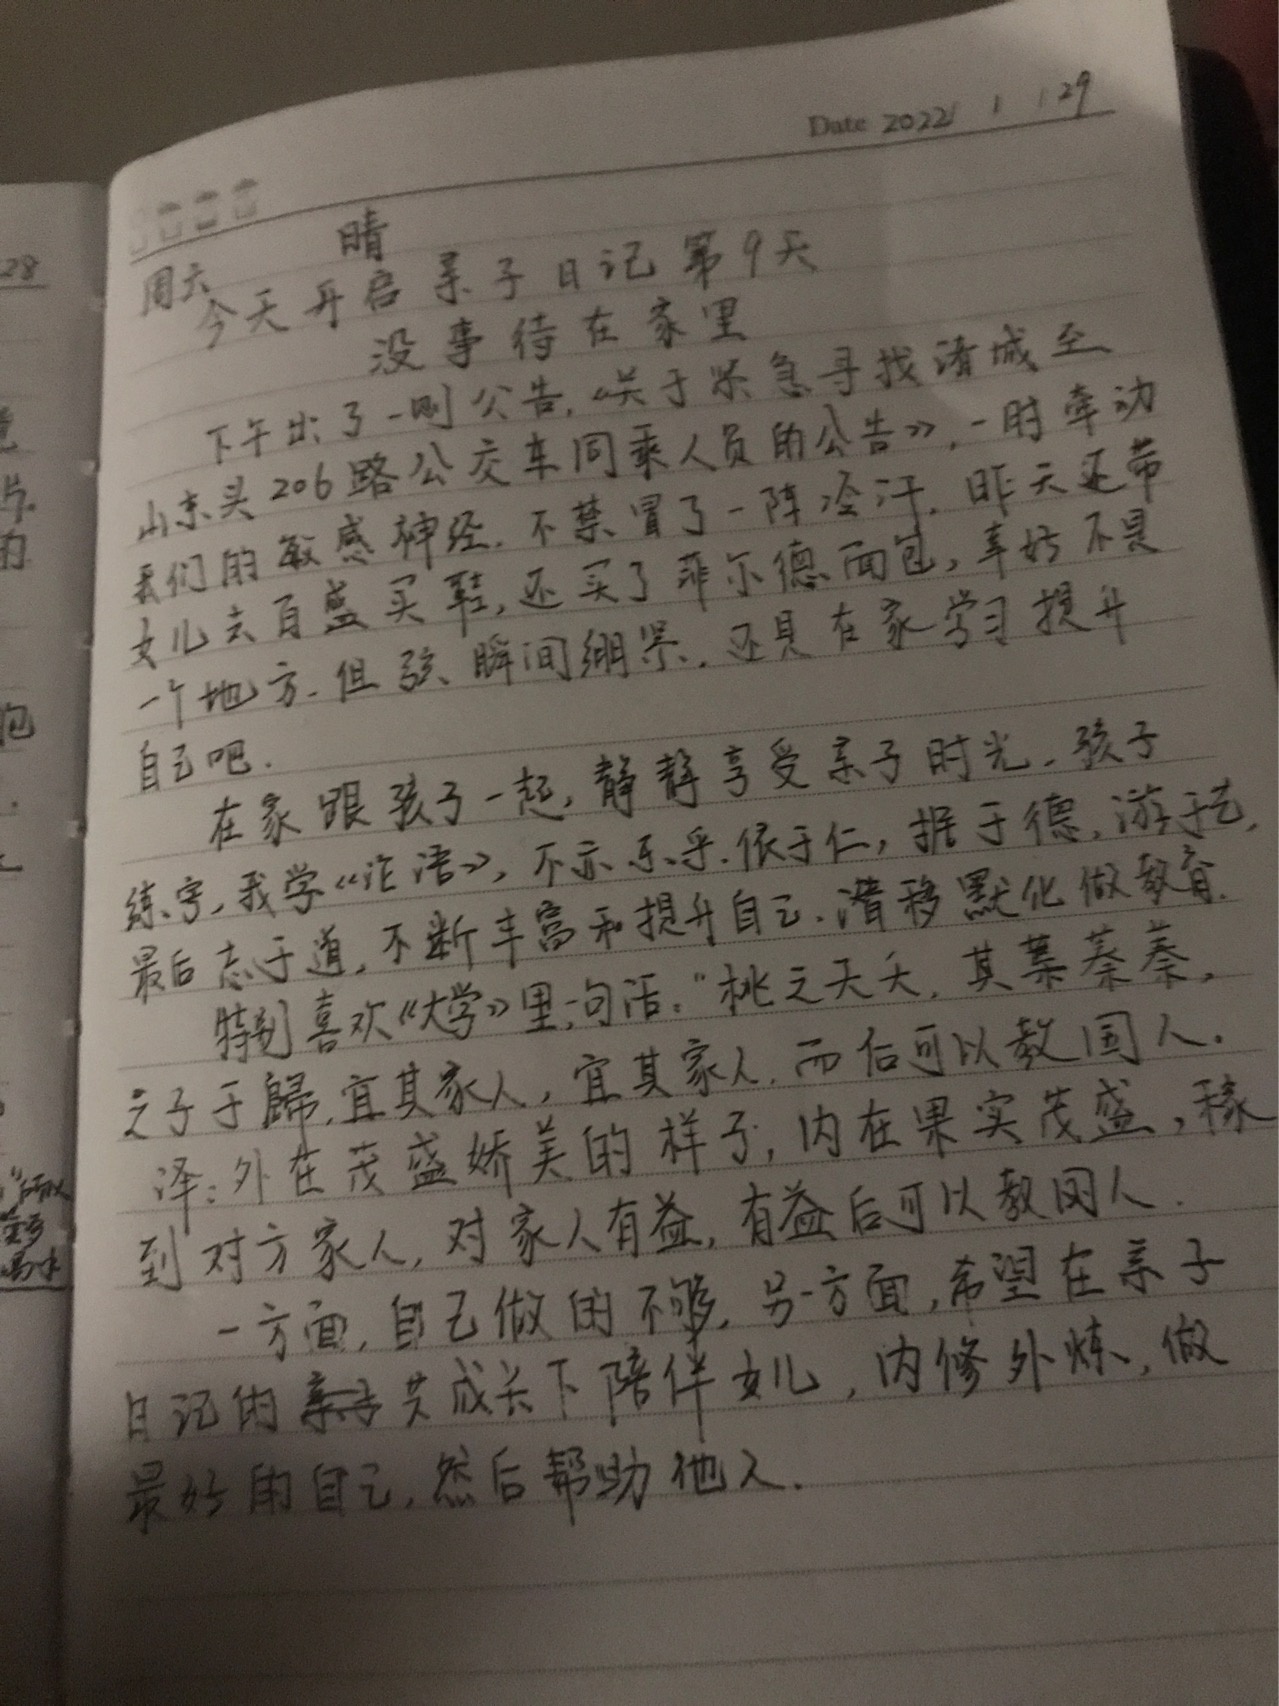 Date 2022/ 1 /29
晴
周六
今天开启亲子日记第9天
没事待在家里
下午出了一则公告，《关于紧急寻找诸城至
山东头206路公交车同乘人员的公告》，一时牵动
我们的敏感神经.不禁冒了一阵冷汗.昨天还带
女儿去百盛买鞋,还买了菲尔德面包,幸好不是
一个地方.但弦瞬间绷紧.还是在家学习提升
自己吧.
在家跟孩子一起,静静享受亲子时光.孩子
练字,我学《论语》,不亦乐乎.依于仁,据于德,游于艺,
最后志于道,不断丰富和提升自己.潜移默化做教育.
特别喜欢《大学》里一句话:"桃之夭夭,其葉蓁蓁,
之子于歸,宜其家人,宜其家人,而后可以教国人.
译:外在茂盛娇美的样子,内在果实茂盛,稼
到对方家人,对家人有益,有益后可以教国人.
一方面,自己做的不够,另一方面,希望在亲子
日记的共成长下陪伴女儿,内修外炼,做
最好的自己,然后帮助他人.
28
的